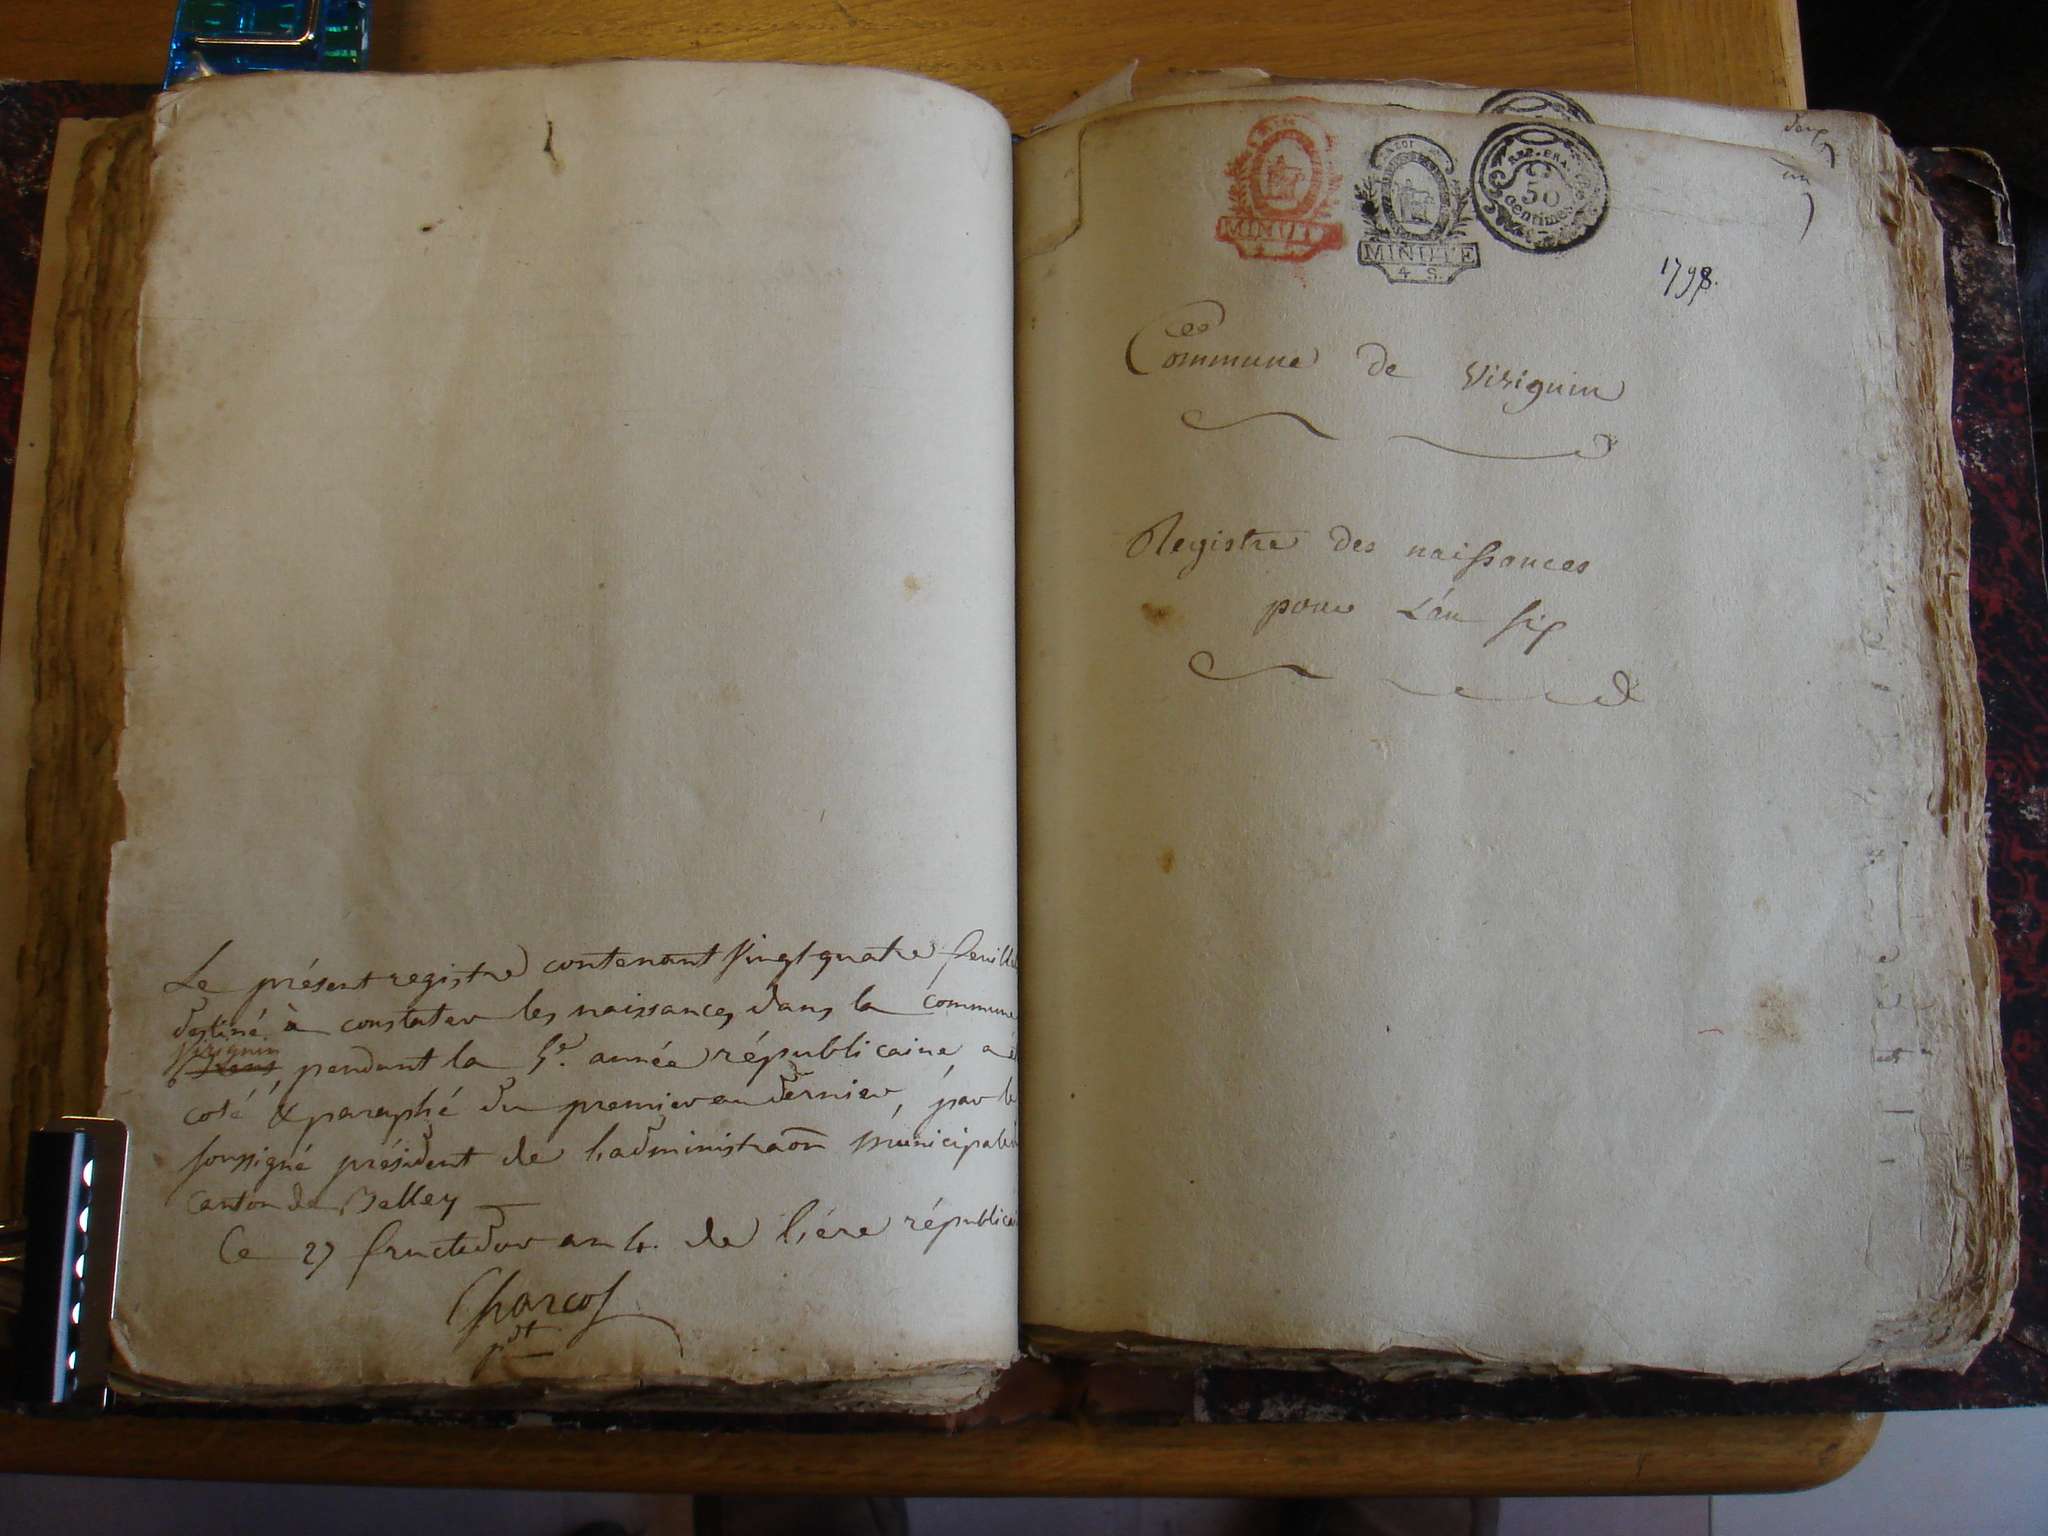 Le présent registre contenant vingt quatre feuille
destiné à constater les naissances dans la commune
Virignin
pendant la 5e. année républicaine a é
coté & paraphé du premier au dernier, par le
soussigné président de l'administraõn municipale
canton de Belley
Ce 27 fructidor an 4. de l'ére républicai
Charcot
pdt
deux
un
MINUTE
MINUTE
4 S.
REP. FRA.
50
centimes
1798.
Commune de Virignin
Registre des naissances
pour L'an six